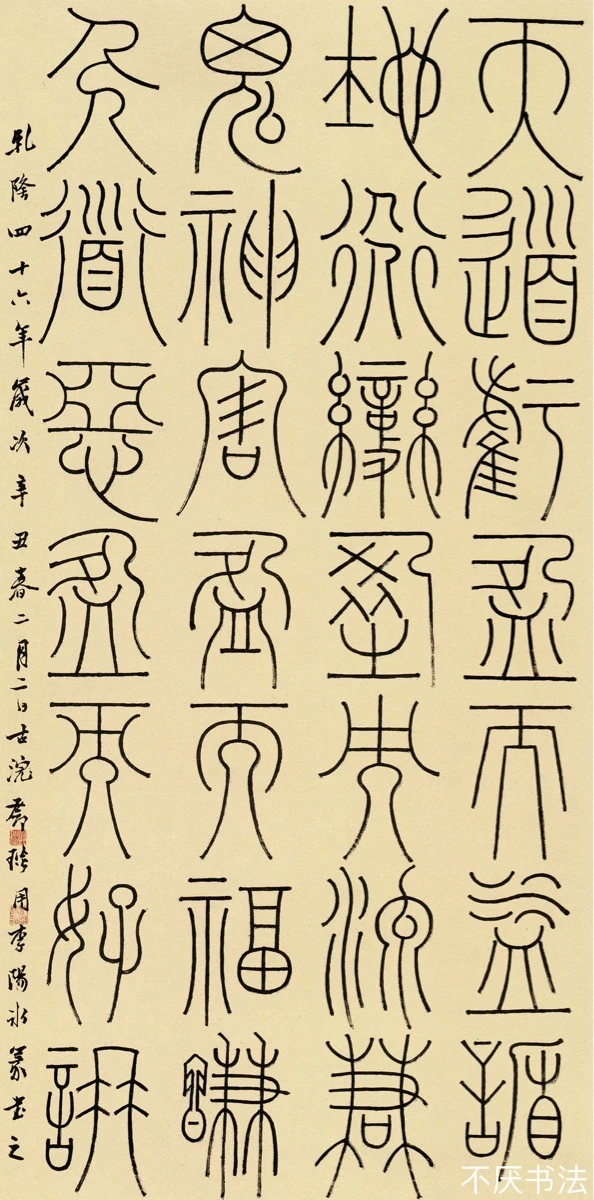 天道虧盈而益謙
地道變盈而流謙
鬼神害盈而福謙
人道惡盈而好謙
乾隆四十六年歲次辛丑春二月二日古浣鄧琰用李陽冰篆書之
不厌书法